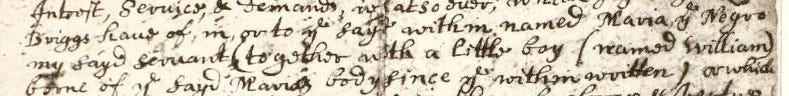 Interest, Service, & demands, whatsoever, which
Briggs have of, in, or to yͤ sayd within named Maria, yͤ Negro
my sayd servant (together wth a little boy (named William)
borne of yͤ sayd Marias body since yͤ within written) or which